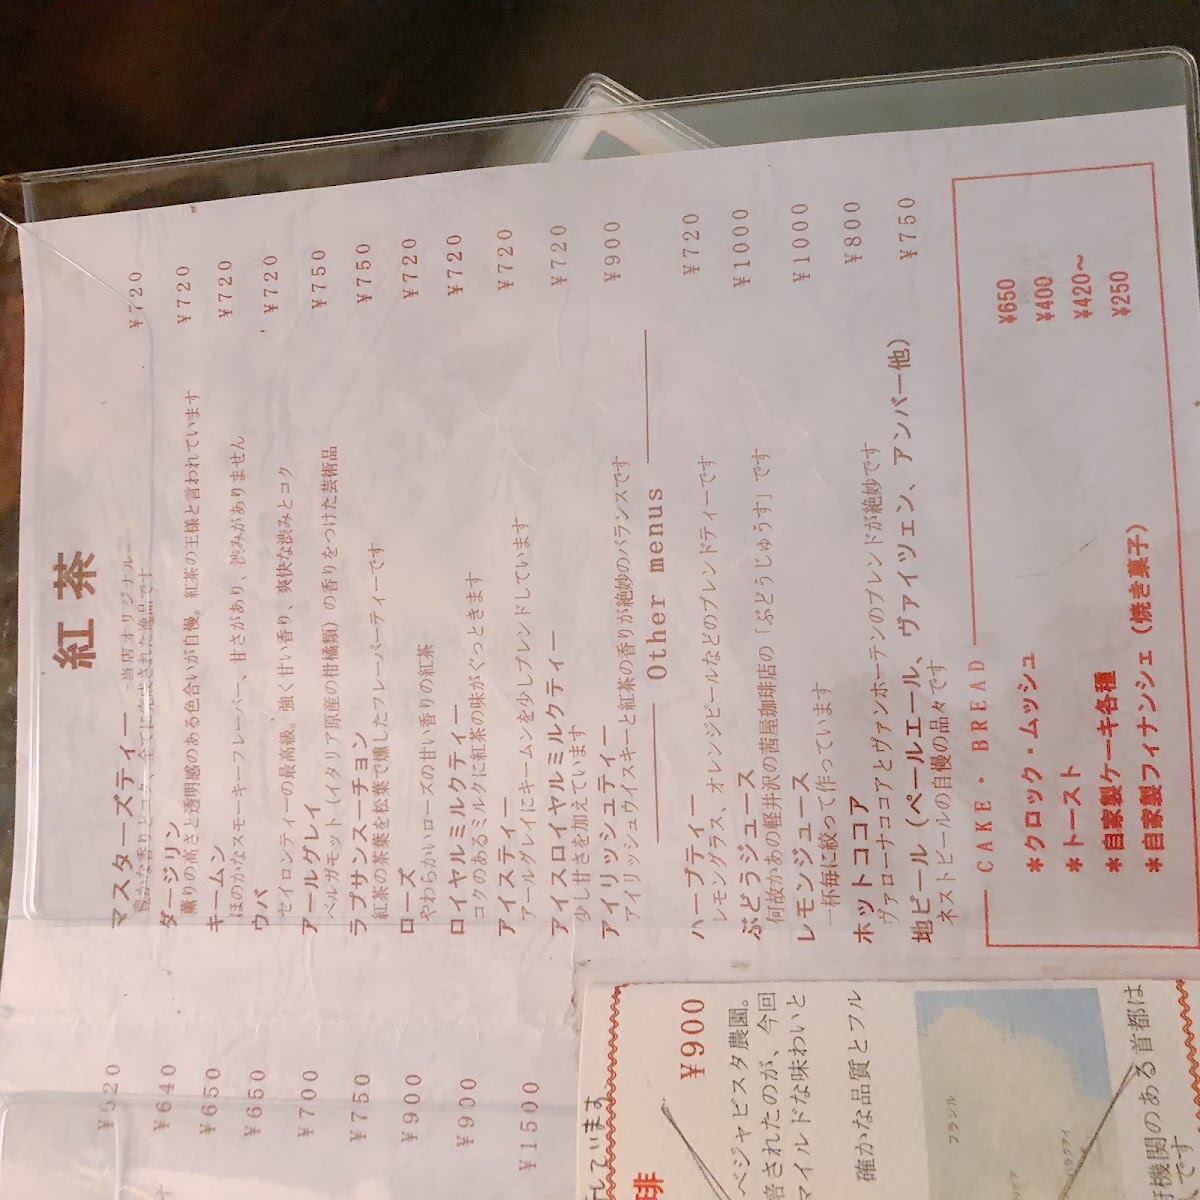 紅茶
マスターズティー －当店オリジナル－ ¥720
豊かな香りとコク、全てに完成された逸品です
ダージリン ¥720
薫りの高さと透明感のある色合いが自慢。紅茶の王様と言われています
キームン ¥720
ほのかなスモーキーフレーバー、甘さがあり、渋みがありません
ウバ ¥720
セイロンティーの最高級。強く甘い香り、爽快な渋みとコク
アールグレイ ¥750
ベルガモット（イタリア原産の柑橘類）の香りをつけた芸術品
ラプサンスーチョン ¥750
紅茶の茶葉を松葉で燻したフレーバーティーです
ローズ ¥720
やわらかいローズの甘い香りの紅茶
ロイヤルミルクティー ¥720
コクのあるミルクに紅茶の味がぐっときます
アイスティー ¥720
アールグレイにキームンを少しブレンドしています
アイスロイヤルミルクティー ¥720
少し甘さを加えています
アイリッシュティー ¥900
アイリッシュウイスキーと紅茶の香りが絶妙のバランスです
Other menus
ハーブティー ¥720
レモングラス、オレンジピールなどのブレンドティーです
ぶどうジュース ¥1000
何故かあの軽井沢の茜屋珈琲店の「ぶどうじゅうす」です
レモンジュース ¥1000
一杯毎に絞って作っています
ホットココア ¥800
ヴァローナココアとヴァンホーテンのブレンドが絶妙です
地ビール（ペールエール、ヴァイツェン、アンバー他） ¥750
ネストビールの自慢の品々です
CAKE・BREAD
*クロック・ムッシュ ¥650
*トースト ¥400
*自家製ケーキ各種 ¥420～
*自家製フィナンシェ（焼き菓子） ¥250
¥520
¥640
¥650
¥650
¥700
¥750
¥900
¥900
¥1500
しています
琲 ¥900
ベジャビスタ農園。
培されたのが、今回
マイルドな味わいと
確かな品質とフル
ブラジル
パラグアイ
機関のある首都は
です